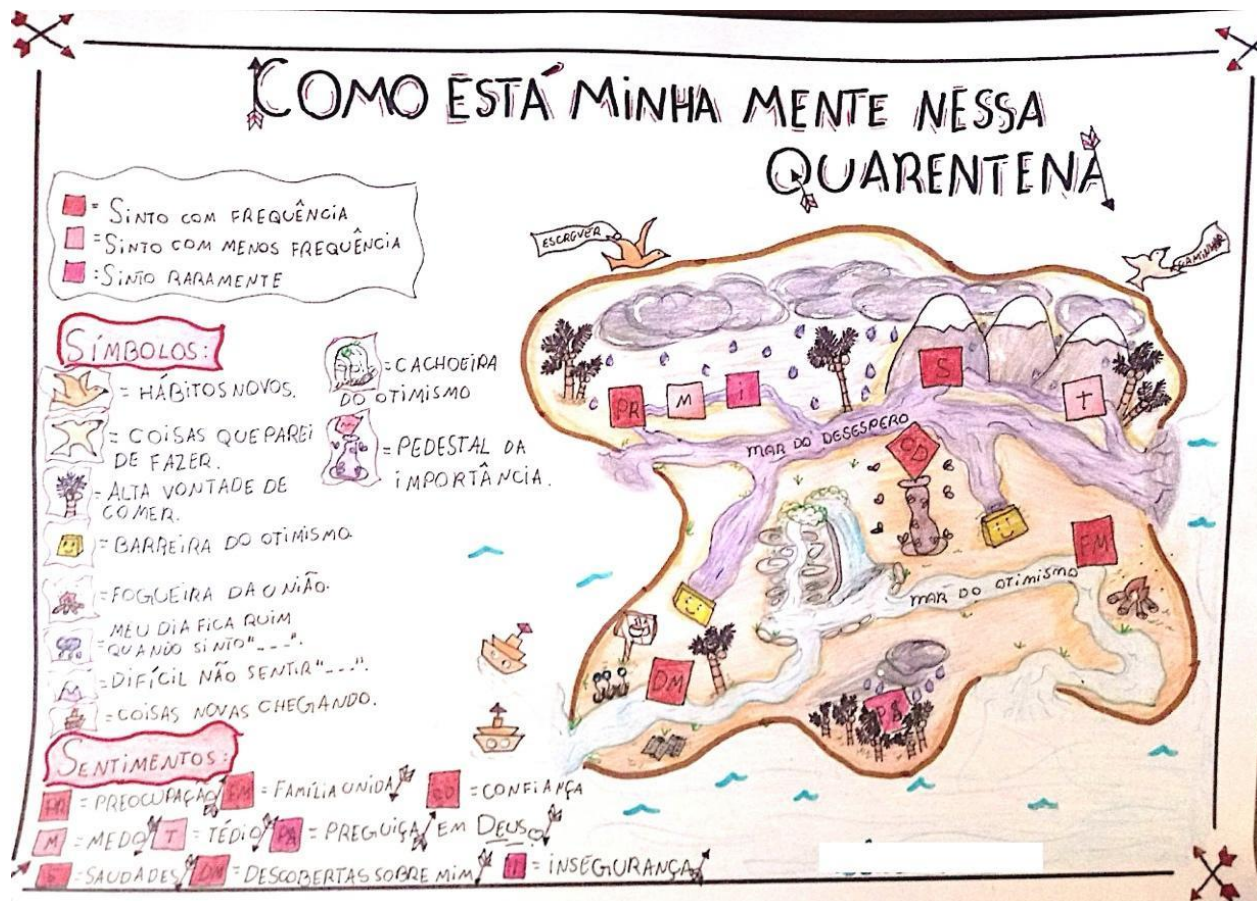 COMO ESTÁ MINHA MENTE NESSA
QUARENTENA
= SINTO COM FREQUÊNCIA
= SINTO COM MENOS FREQUÊNCIA
= SINTO RARAMENTE
SÍMBOLOS:
= HÁBITOS NOVOS.
= COISAS QUE PAREI
DE FAZER.
= ALTA VONTADE DE
COMER.
= BARREIRA DO OTIMISMO
= FOGUEIRA DA UNIÃO.
MEU DIA FICA RUIM
QUANDO SINTO "---".
= DIFÍCIL NÃO SENTIR "---".
= COISAS NOVAS CHEGANDO.
= CACHOEIRA
DO OTIMISMO
= PEDESTAL DA
IMPORTÂNCIA.
SENTIMENTOS:
PR = PREOCUPAÇÃO FM = FAMÍLIA UNIDA CD = CONFIANÇA
M = MEDO T = TÉDIO PA = PREGUIÇA EM DEUS
S = SAUDADES DM = DESCOBERTAS SOBRE MIM I = INSEGURANÇA
ESCREVER
CAMINHAR
PR
M
I
S
T
MAR DO DESESPERO
CD
FM
MAR DO OTIMISMO
DM